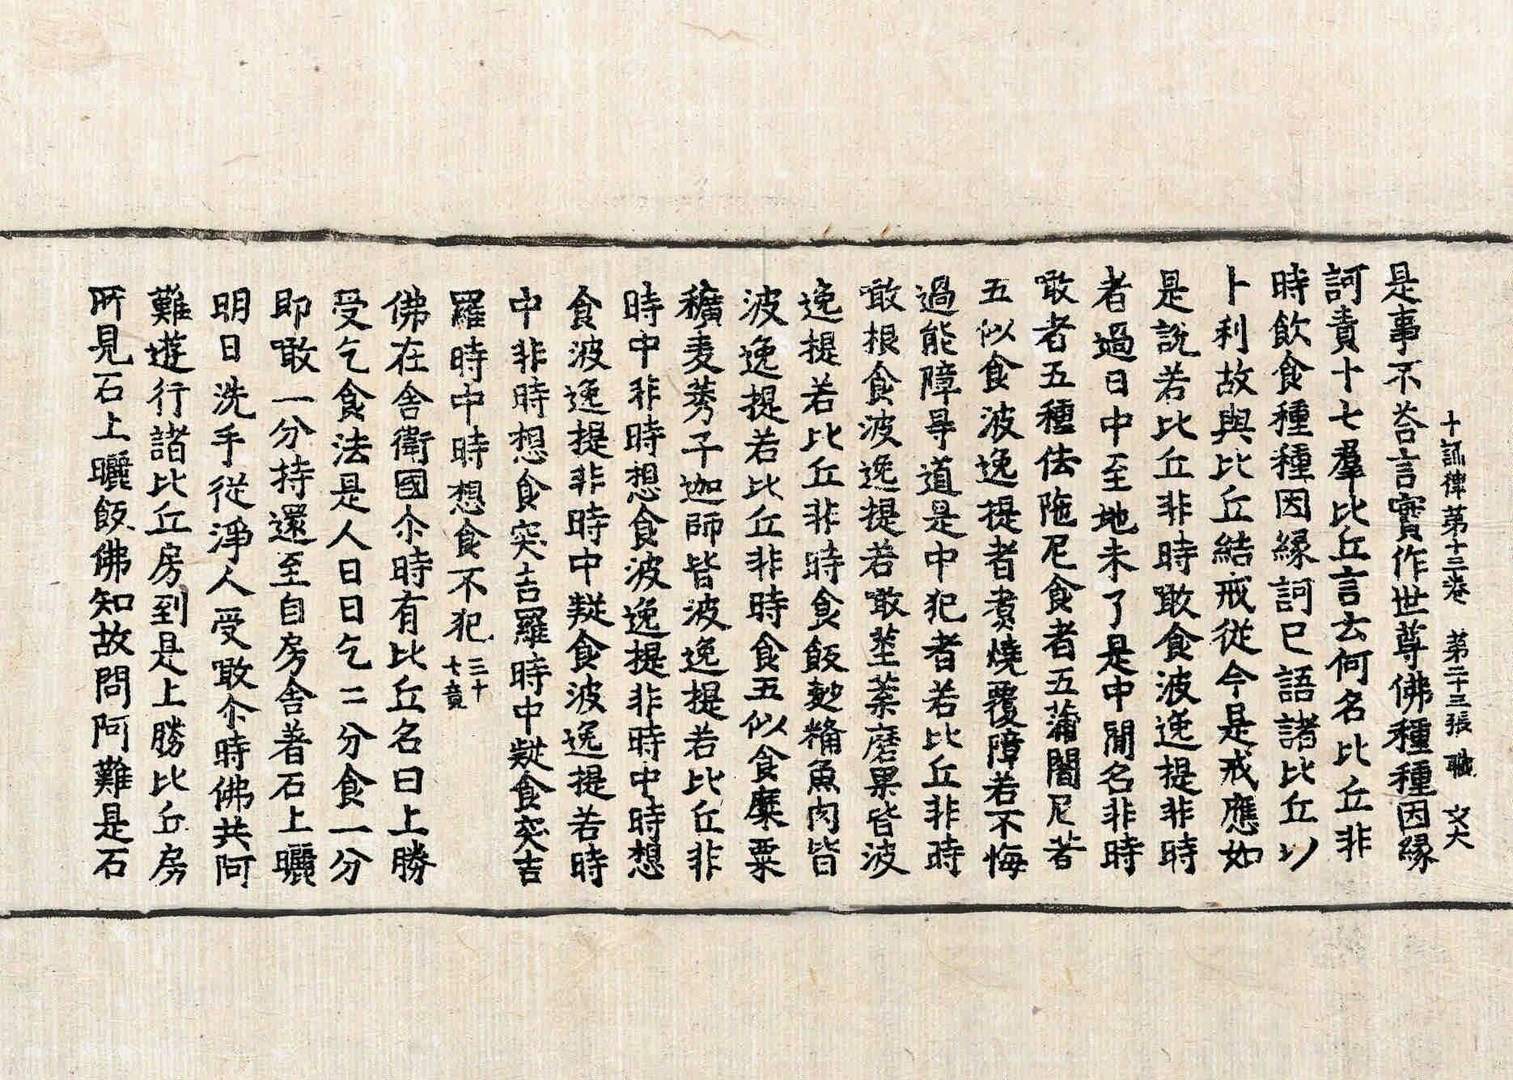 十誦律第十三卷　第二十三張　職　文大
是事不荅言實作世尊佛種種因緣
訶責十七羣比丘言云何名比丘非
時飲食種種因緣訶已語諸比丘以
十利故與比丘結戒從今是戒應如
是說若比丘非時噉食波逸提非時
者過日中至地未了是中間名非時
噉者五種佉陁尼食者五蒲闍尼若
五似食波逸提者煑燒覆障若不悔
過能障㝵道是中犯者若比丘非時
噉根食波逸提若噉莖葉磨果皆波
逸提若比丘非時食飯麨糒魚肉皆
波逸提若比丘非時食五似食糜粟
穬麦莠子迦師皆波逸提若比丘非
時中非時想食波逸提非時中時想
食波逸提非時中疑食波逸提若時
中非時想食突吉羅時中疑食突吉
羅時中時想食不犯三十七竟
佛在舍衛國尒時有比丘名曰上勝
受乞食法是人日日乞二分食一分
即噉一分持還至自房舍著石上曬
明日洗手從淨人受噉尒時佛共阿
難遊行諸比丘房到是上勝比丘房
所見石上曬飯佛知故問阿難是石